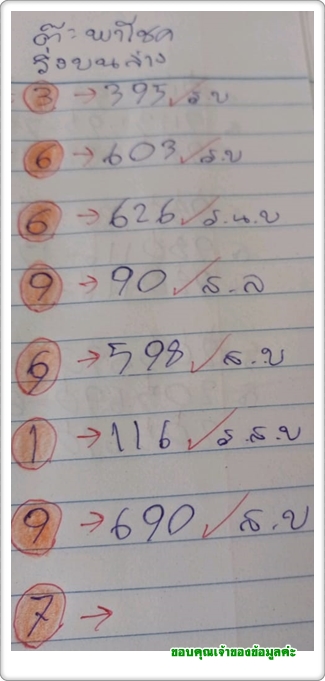 ต๊ะ พาโชค
วิ่งบนล่าง
3 → 395 ✓ ร.บ
6 → 603 ✓ ร.บ
6 → 626 ✓ ร.น.บ
9 → 90 ✓ ส.ล
6 → 598 ✓ ส.บ
1 → 116 ✓ ร.ส.บ
9 → 690 ✓ ส.บ
7 →
ขอบคุณเจ้าของข้อมูลค่ะ